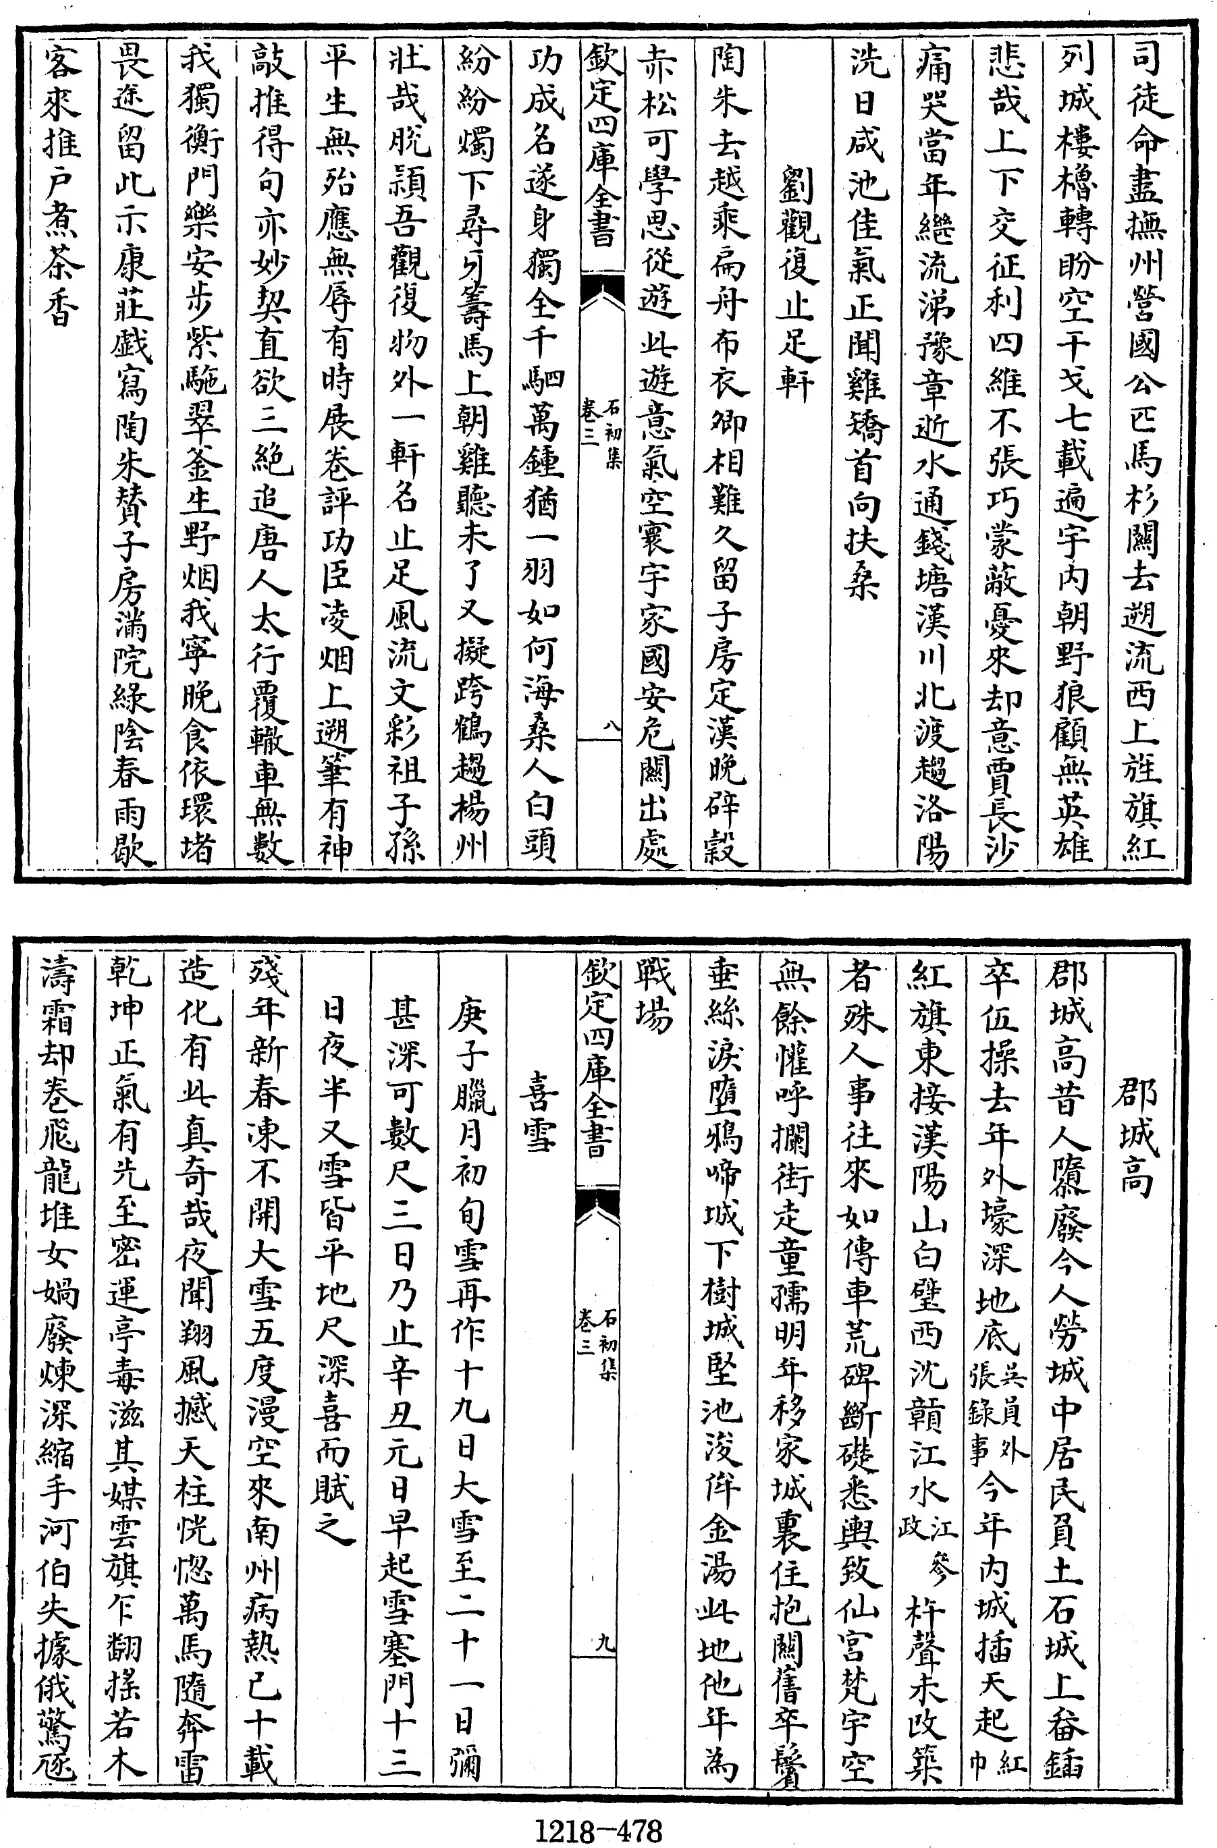 司徒命盡撫州營國公匹馬杉關去遡流西上旌旗紅
列城樓櫓轉盼空干戈七載遍宇内朝野狼顧無英雄
悲哉上下交征利四維不張巧蒙蔽憂來却意賈長沙
痛哭當年繼流涕豫章逝水通錢塘漢川北渡趨洛陽
洗日咸池佳氣正聞雞矯首向扶桑
劉觀復止足軒
陶朱去越乘扁舟布衣卿相難久留子房定漢晚辟穀
赤松可學思從遊此遊意氣空寰宇家國安危關出處
欽定四庫全書
石初集
卷三
八
功成名遂身獨全千駟萬鍾猶一羽如何海桑人白頭
紛紛燭下尋牙籌馬上朝雞聽未了又擬跨鶴趨楊州
壯哉脫潁吾觀復物外一軒名止足風流文彩祖子孫
平生無殆應無辱有時展卷評功臣凌烟上遡筆有神
敲推得句亦妙契直欲三絶追唐人太行覆轍車無數
我獨衡門樂安步紫駞翠釜生野烟我寧晚食依環堵
畏途留此示康莊戯寫陶朱賛子房滿院緑陰春雨歇
客來推戸煮茶香
郡城高
郡城高昔人隳廢今人勞城中居民負土石城上畚鍤
卒伍操去年外壕深地底吳員外張錄事今年内城插天起紅巾
紅旗東接漢陽山白璧西沈贛江水江參政杵聲未改築
者殊人事往來如傳車荒碑斷礎悉輿致仙宫梵宇空
無餘懽呼攔街走童孺明年移家城裏住抱關舊卒鬢
垂絲淚墮鴉啼城下樹城堅池浚侔金湯此地他年為
戰場
欽定四庫全書
石初集
卷三
九
喜雪
庚子臘月初旬雪再作十九日大雪至二十一日彌
甚深可數尺三日乃止辛丑元日早起雪塞門十三
日夜半又雪皆平地尺深喜而賦之
殘年新春凍不開大雪五度漫空來南州病熱已十載
造化有此真奇哉夜聞翔風撼天柱恍惚萬馬隨奔雷
乾坤正氣有先至密運亭毒滋其媒雲旗乍翻揺若木
濤霜却卷飛龍堆女媧廢煉深縮手河伯失據俄驚豗
1218-478